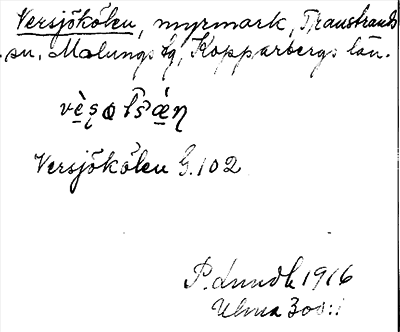 Versjökölen, myrmark, Transtrands
sn, Malungs tg, Kopparbergs län.
Versjökölen G. 102
P. Lundh 1916
Ulma 300:1